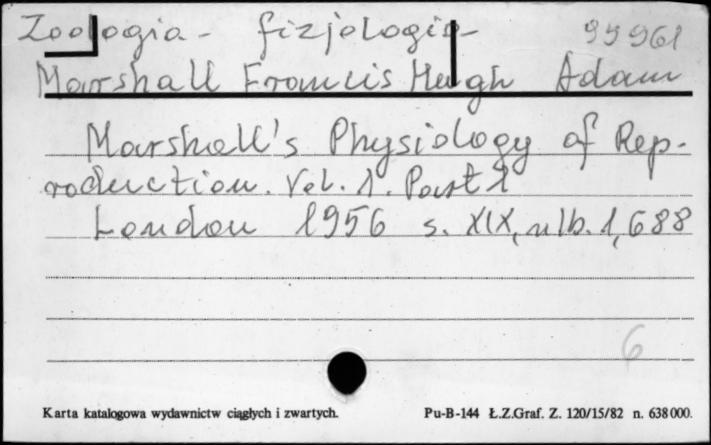 Zoologia - fizjologia - 99961
Marshall Francis Hugh Adam
Marshall's Physiology of Rep-
roduction. Vol. 1. Part 1
London 1956 s. XIX, nlb. 1, 688
6
Karta katalogowa wydawnictw ciągłych i zwartych. Pu-B-144 Ł.Z.Graf. Z. 120/15/82 n. 638000.